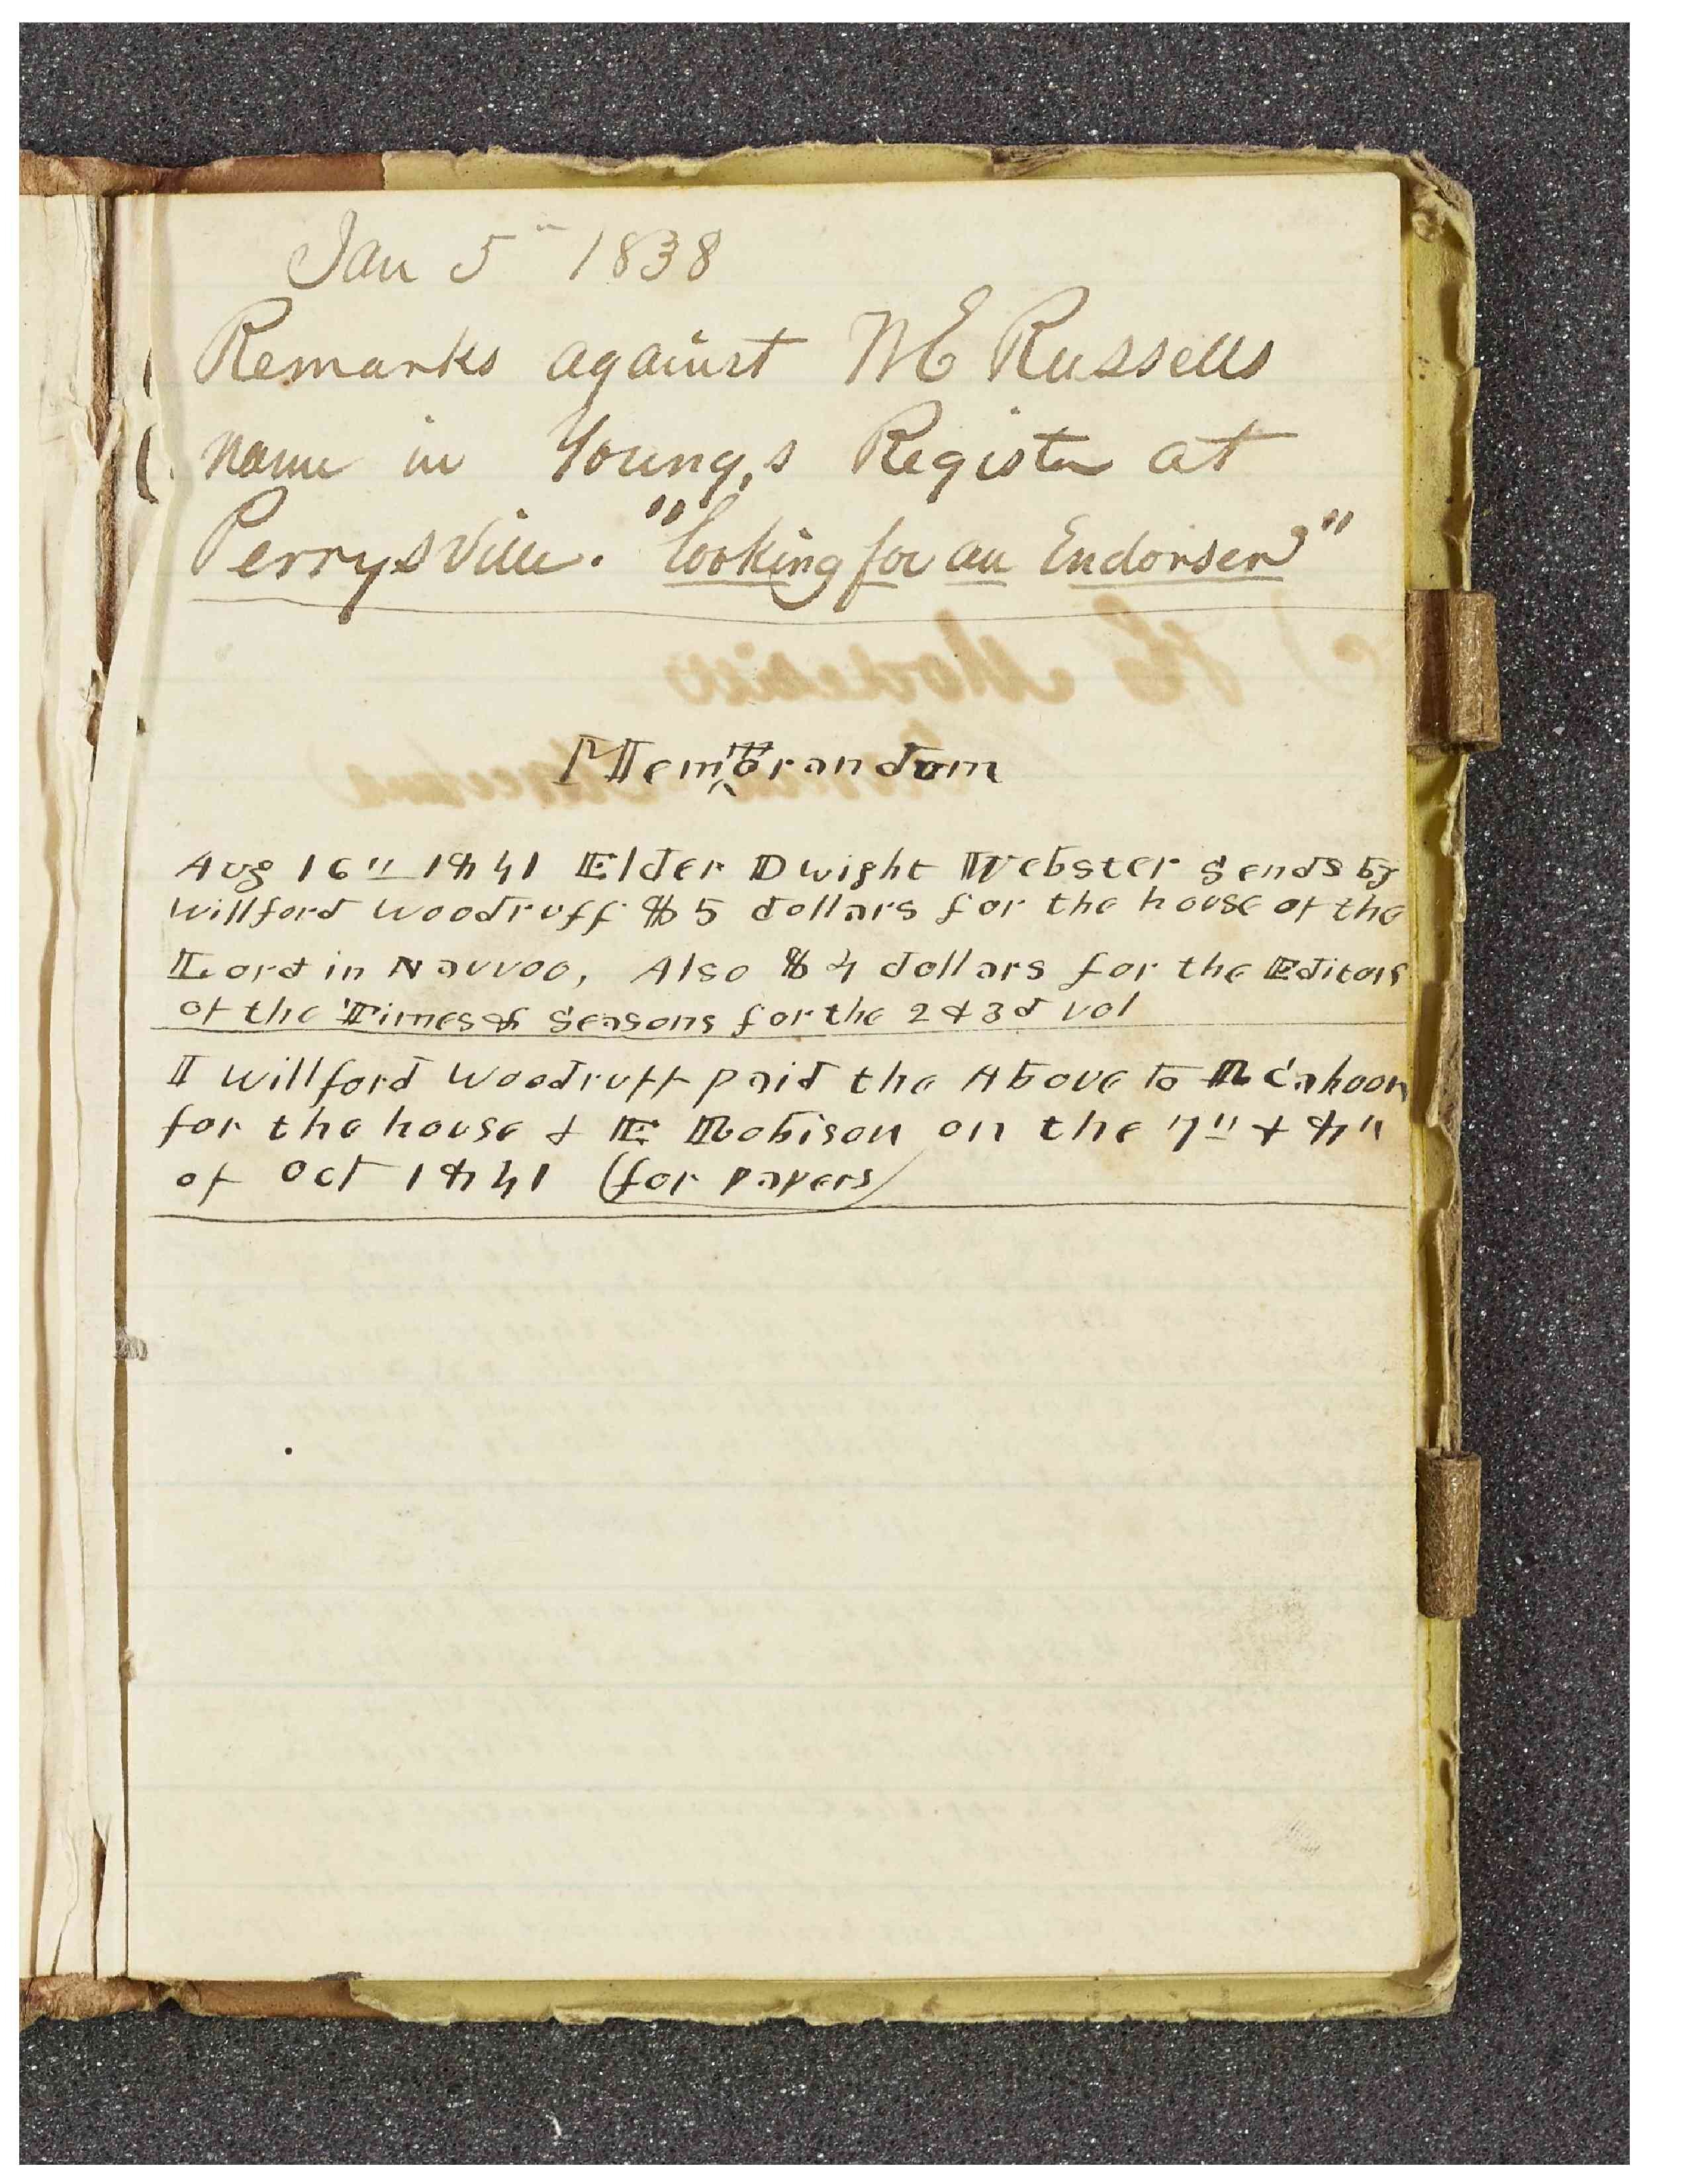 Jan 5" 1838
Remarks against ME Russells
name in Young,s Register at
Perrysville. "looking for an Endorser"
Memorandum
Aug 16" 1841 Elder Dwight Webster sends by
Willford Woodruff $5 dollars for the house of the
Lord in Nauvoo, Also $4 dollars for the Editors
of the Times & Seasons for the 2 & 3d vol
I Willford Woodruff paid the Above to R Cahoon
for the house & E Robison on the 7" & 8"
of Oct 1841 (for papers)